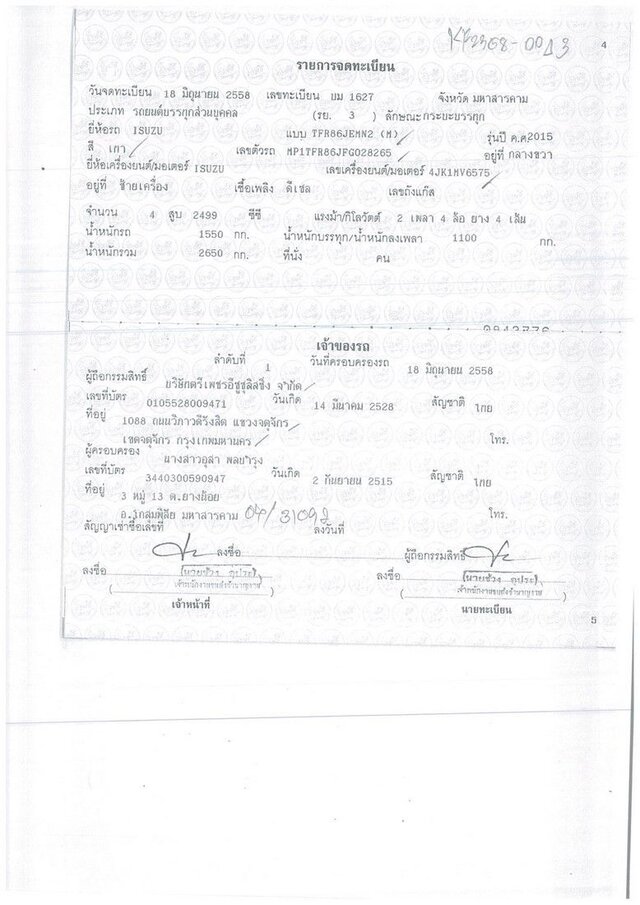 4
รายการจดทะเบียน
วันจดทะเบียน 18 มิถุนายน 2558 เลขทะเบียน บม 1627 จังหวัด มหาสารคาม
ประเภท รถยนต์บรรทุกส่วนบุคคล (รย. 3 ) ลักษณะกระบะบรรทุก
ยี่ห้อรถ ISUZU แบบ TFR86JEMN2 (M) รุ่นปี ค.ศ.2015
สี เทา เลขตัวรถ MP1TFR86JFG028265 อยู่ที่ กลางขวา
ยี่ห้อเครื่องยนต์/มอเตอร์ ISUZU เลขเครื่องยนต์/มอเตอร์ 4JK1MV6575
อยู่ที่ ซ้ายเครื่อง เชื้อเพลิง ดีเซล เลขถังแก๊ส
จำนวน 4 สูบ 2499 ซีซี แรงม้า/กิโลวัตต์ 2 เพลา 4 ล้อ ยาง 4 เส้น
น้ำหนักรถ 1550 กก. น้ำหนักบรรทุก/น้ำหนักลงเพลา 1100 กก.
น้ำหนักรวม 2650 กก. ที่นั่ง คน
เจ้าของรถ
ลำดับที่ 1 วันที่ครอบครองรถ 18 มิถุนายน 2558
ผู้ถือกรรมสิทธิ์ บริษัทตรีเพชรอีซูซุลิสซิ่ง จำกัด
เลขที่บัตร 0105528009471 วันเกิด 14 มีนาคม 2528 สัญชาติ ไทย
ที่อยู่ 1088 ถนนวิภาวดีรังสิต แขวงจตุจักร
เขตจตุจักร กรุงเทพมหานคร โทร.
ผู้ครอบครอง นางสาวอุสา พลบำรุง
เลขที่บัตร 3440300590947 วันเกิด 2 กันยายน 2515 สัญชาติ ไทย
ที่อยู่ 3 หมู่ 13 ต.ยางน้อย
อ.โกสุมพิสัย มหาสารคาม โทร.
สัญญาเช่าซื้อเลขที่ ลงวันที่
ลงชื่อ ผู้ถือกรรมสิทธิ์
ลงชื่อ ลงชื่อ
เจ้าหน้าที่ นายทะเบียน
5